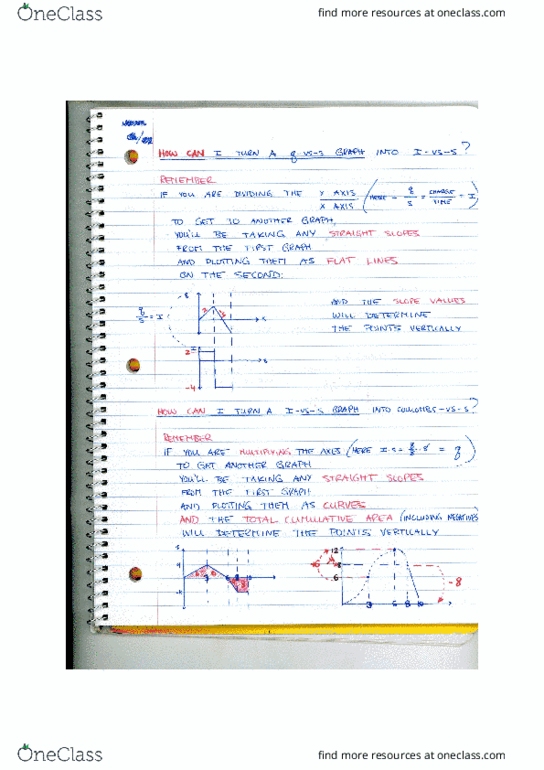 OneClass
find more resources at oneclass.com
HOW CAN I TURN A q-VS-S GRAPH INTO I-VS-S?
REMEMBER
IF YOU ARE DIVIDING THE Y AXIS / X AXIS (HERE = q/s = CHARGE/TIME = I)
TO GET TO ANOTHER GRAPH,
YOU'LL BE TAKING ANY STRAIGHT SLOPES
FROM THE FIRST GRAPH
AND PLOTTING THEM AS FLAT LINES
ON THE SECOND:
q/s = I
AND THE SLOPE VALUES
WILL DETERMINE
THE POINTS VERTICALLY
2
-4
HOW CAN I TURN A I-VS-S GRAPH INTO COULOMBS-VS-S?
REMEMBER
IF YOU ARE MULTIPLYING THE AXIS (HERE I·S = q/s · s = q)
TO GET ANOTHER GRAPH
YOU'LL BE TAKING ANY STRAIGHT SLOPES
FROM THE FIRST GRAPH
AND PLOTTING THEM AS CURVES
AND THE TOTAL CUMULATIVE AREA (INCLUDING NEGATIVES)
WILL DETERMINE THE POINTS VERTICALLY
4
3 6 8 10
12
8
6
-8
3 6 8 10
OneClass
find more resources at oneclass.com